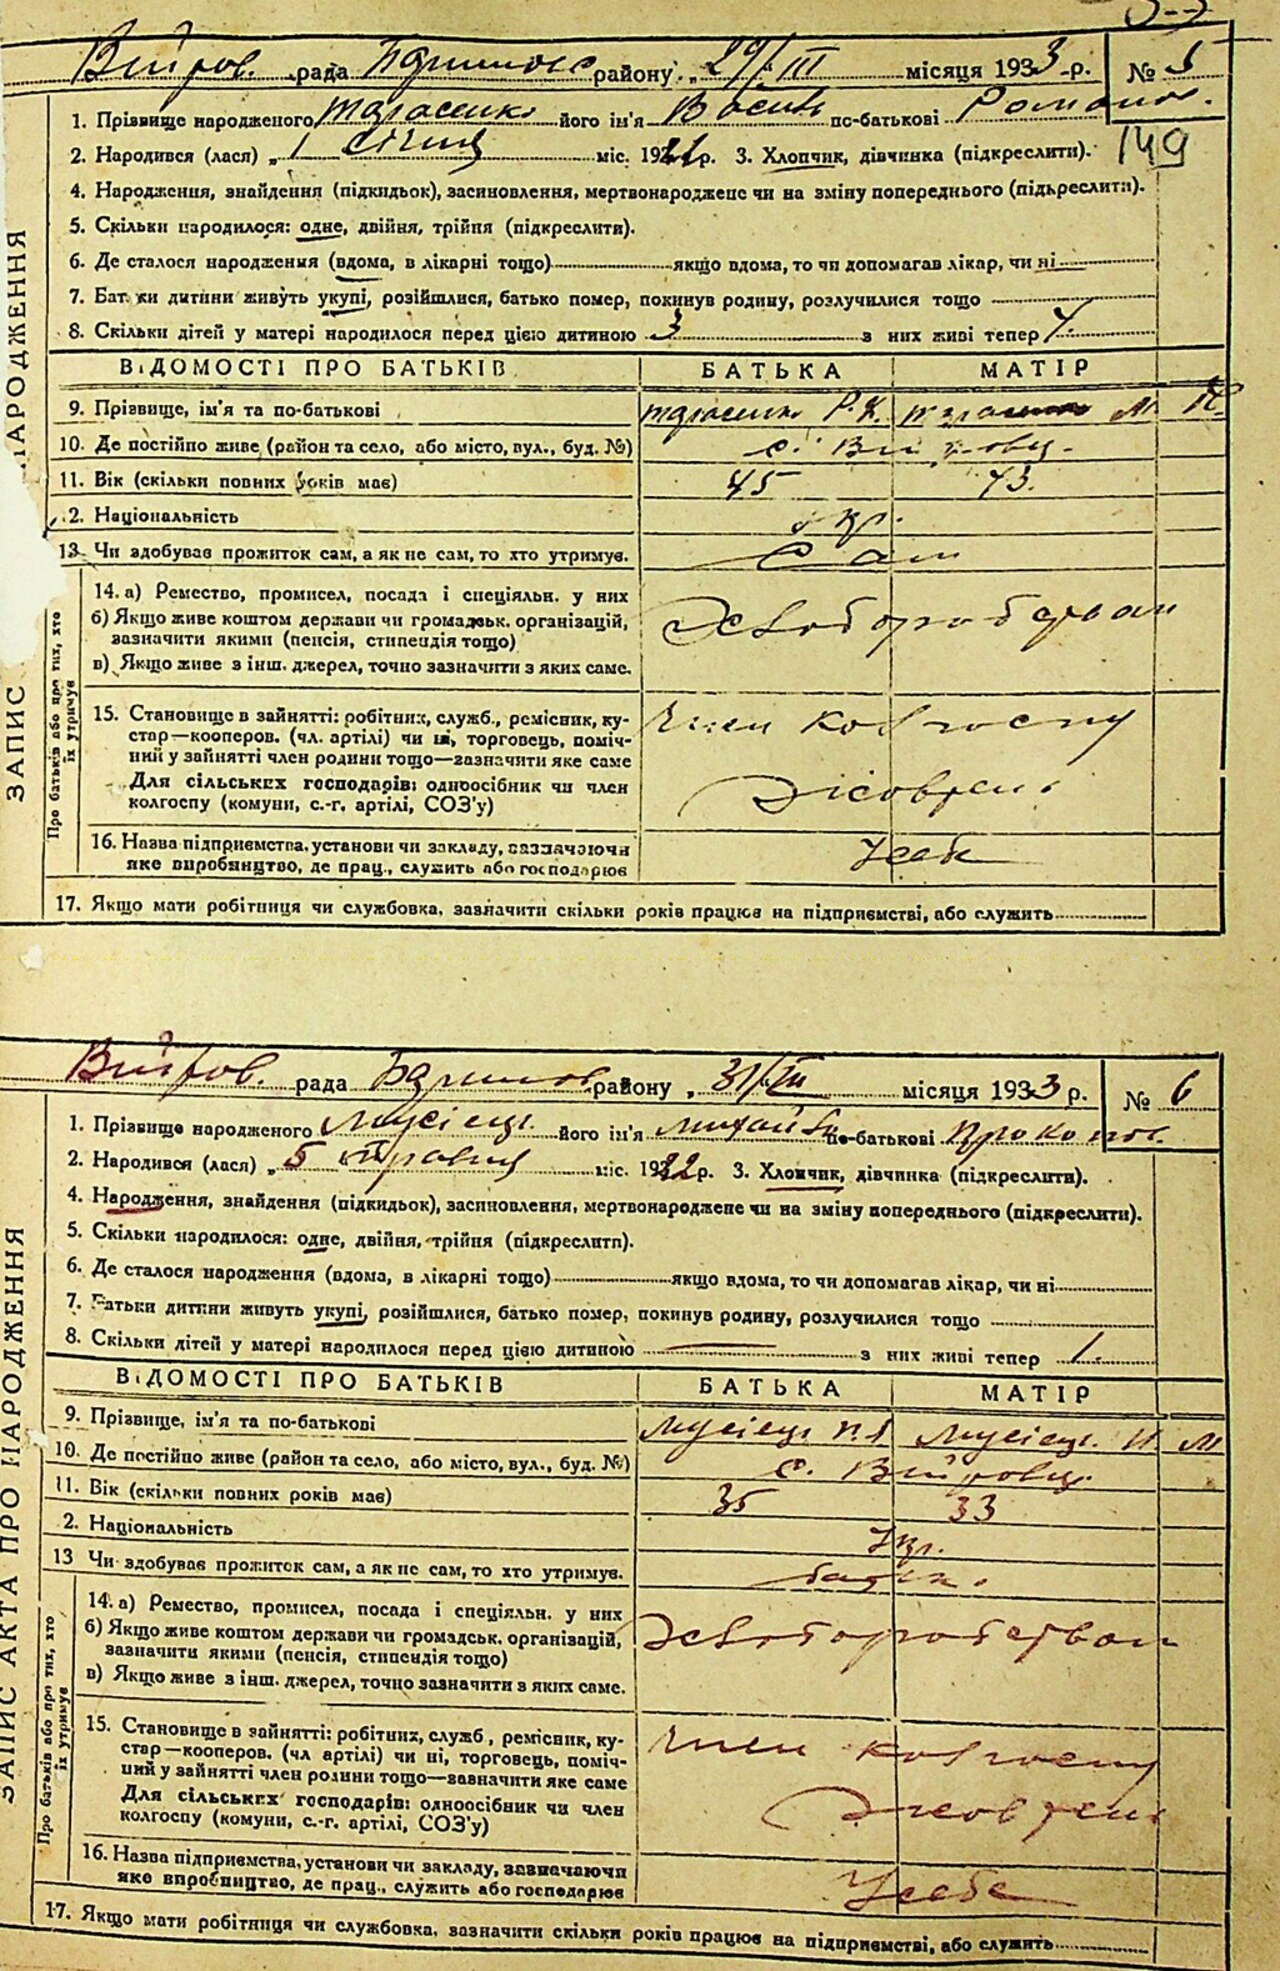 рада района „29/III місяця 1933 р. № 5
1. Прізвище народженого Тарасенко його ім'я Василь по-батькові Романов.
149
2. Народився (лася) „1 січня міс. 19 р. 3. Хлопчик, дівчинка (підкреслити).
4. Народження, знайдення (підкидьок), засиновлення, мертвонароджене чи на зміну попереднього (підкреслити).
5. Скільки народилося: одне, двійня, трійня (підкреслити).
6. Де сталося народження (вдома, в лікарні тощо) якщо вдома, то чи допомагав лікар, чи ні
7. Батьки дитини живуть укупі, розійшлися, батько помер, покинув родину, розлучилися тощо
8. Скільки дітей у матері народилося перед цією дитиною 3 з них живі тепер 4.
ЗАПИС НАРОДЖЕННЯ
ВІДОМОСТІ ПРО БАТЬКІВ БАТЬКА МАТІР
9. Прізвище, ім'я та по-батькові Тарасенко Р. Тарасенко М.
10. Де постійно живе (район та село, або місто, вул., буд. №) с. Вийровц.
11. Вік (скільки повних років має) 45 43.
2. Національність Укр.
13. Чи здобував прожиток сам, а як не сам, то хто утримує. Сам
Про батьків або про тих, хто їх утримує
14. а) Ремество, промисел, посада і спеціяльн. у них
б) Якщо живе коштом держави чи громадськ. організацій, Хліборобством
зазначити якими (пенсія, стипендія тощо)
в) Якщо живе з інш. джерел, точно зазначити з яких саме.
15. Становище в зайнятті: робітник, служб., ремісник, ку- Член колгоспу
стар—кооперов. (чл. артілі) чи ні, торговець, поміч-
ний у зайнятті член родини тощо—зазначити яке саме
Для сільських господарів: одноосібник чи член
колгоспу (комуни, с.-г. артілі, СОЗ'у)
16. Назва підприємства, установи чи закладу, зазначаючи У себе
яке виробництво, де прац., служить або господарює
17. Якщо мати робітниця чи службовка, зазначити скільки років працює на підприємстві, або служить
рада району „31/III місяця 1933 р. № 6
1. Прізвище народженого Мусієць його ім'я Михайло по-батькові Прокопов.
2. Народився (лася) „5 травня міс. 1932 р. 3. Хлопчик, дівчинка (підкреслити).
4. Народження, знайдення (підкидьок), засиновлення, мертвонароджене чи на зміну попереднього (підкреслити).
5. Скільки народилося: одне, двійня, трійня (підкреслити).
6. Де сталося народження (вдома, в лікарні тощо) якщо вдома, то чи допомагав лікар, чи ні
7. Батьки дитини живуть укупі, розійшлися, батько помер, покинув родину, розлучилися тощо
8. Скільки дітей у матері народилося перед цією дитиною — з них живі тепер 1.
ЗАПИС АКТА ПРО НАРОДЖЕННЯ
ВІДОМОСТІ ПРО БАТЬКІВ БАТЬКА МАТІР
9. Прізвище, ім'я та по-батькові Мусієць П. Я. Мусієць. И М
10. Де постійно живе (район та село, або місто, вул., буд. №) с. Вийровц.
11. Вік (скільки повних років має) 35 33
2. Національність Укр.
13 Чи здобував прожиток сам, а як не сам, то хто утримує. батьк.
Про батьків або про тих, хто їх утримує
14. а) Ремество, промисел, посада і спеціяльн. у них
б) Якщо живе коштом держави чи громадськ. організацій, Хліборобством
зазначити якими (пенсія, стипендія тощо)
в) Якщо живе з інш. джерел, точно зазначити з яких саме.
15. Становище в зайнятті: робітник, служб., ремісник, ку- Член колгоспу
стар—кооперов. (чл артілі) чи ні, торговець, поміч-
ний у зайнятті член родини тощо—зазначити яке саме
Для сільських господарів: одноосібник чи член
колгоспу (комуни, с.-г. артілі, СОЗ'у)
16. Назва підприємства, установи чи закладу, зазначаючи У себе
яке виробництво, де прац., служить або господарює
17. Якщо мати робітниця чи службовка, зазначити скільки років працює на підприємстві, або служить